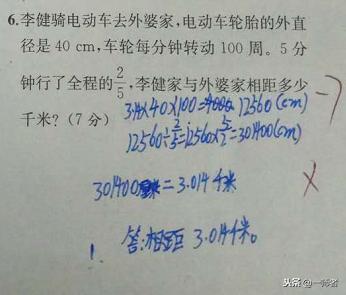 6.李健骑电动车去外婆家,电动车轮胎的外直
径是 40 cm,车轮每分钟转动 100 周。5 分
钟行了全程的2/5,李健家与外婆家相距多少
千米?(7 分)
3.14×40×100=12560(cm)
-7
12560÷2/5=12560×5/2=301400(cm)
301400厘米=3.014千米
×
答:相距 3.014千米。
头条 @一师者